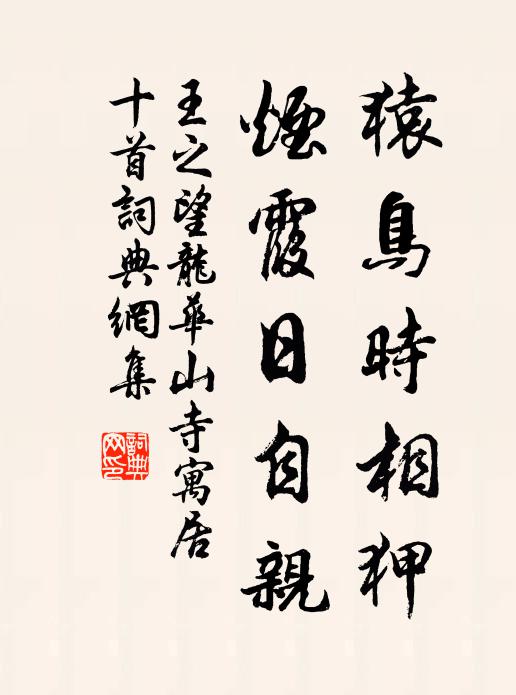 猿鳥時相狎
煙霞日自親
王之望龍華山寺寓居
十首詞典網集
詞典網印